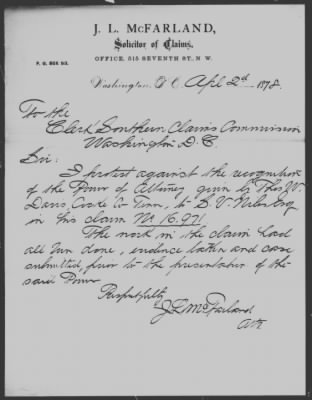 J. L. McFARLAND,
Solicitor of Claims,
OFFICE, 515 SEVENTH ST., N. W.
P. O. BOX 513.
Washington, D. C., Apl 2d 1878.
To the
Clerk Southern Claims Commission
Washington D. C.
Sir:
I protest against the recognition
of the Power of Attorney given by Thos. W.
Davis, Cocke Co Tenn, to
in his claim No 16.971
The work in the claim had
all been done, evidence taken and case
submitted, prior to the presentation of the
said Power
Respectfully
J L McFarland
Atty